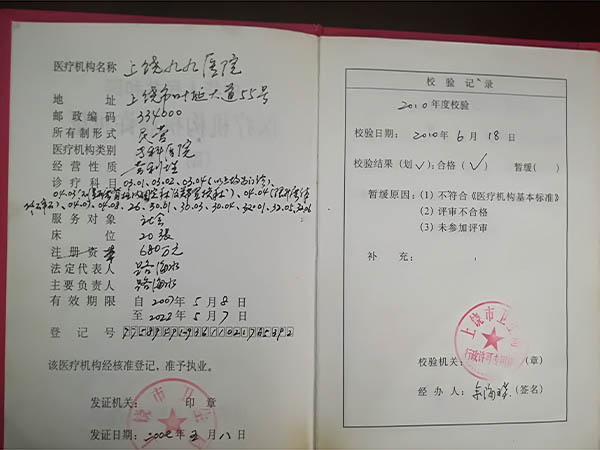 医疗机构名称 上饶九九医院
地 址 上饶市叶挺大道55号
邮政编码 334600
所有制形式 民营
医疗机构类别 专科医院
经营性质 营利性
诊疗科目 03.01、03.02、03.04
04.07、04.08、26、30.01、30.03、30.04、32.01、32.05、32.06
服务对象 社会
床 位 20张
注册资 680万元
法定代表人 路海水
主要负责人 路海水
有效期限 自 2007年 5月 8日
至 2022年 5月 7日
登记号
该医疗机构经核准登记，准予执业。
发证机关： 印 章
上饶市卫
发证日期：五月八日
校验记录
2010年度校验
校验日期： 2010年 6月 18日
校验结果（划√）：合格（√） 暂缓（ ）
暂缓原因：(1) 不符合《医疗机构基本标准》
(2) 评审不合格
(3) 未参加评审
补 充：
上饶市卫
行政许可专用
校验机关： （章）
经 办 人： （签名）